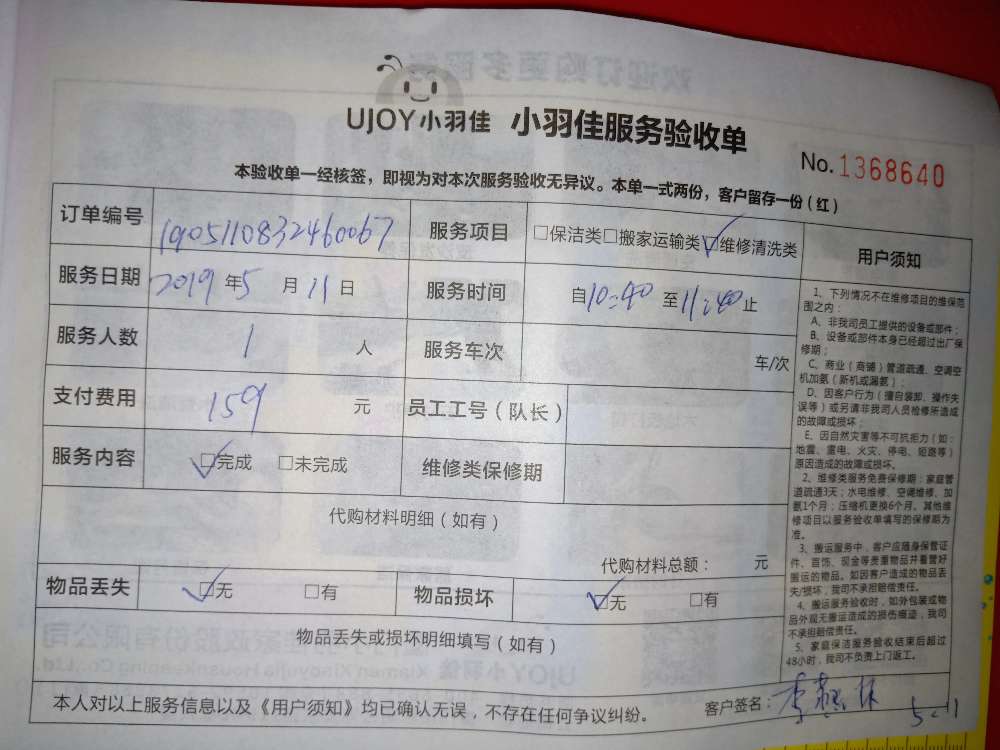 UJOY小羽佳 小羽佳服务验收单
No.1368640
本验收单一经核签，即视为对本次服务验收无异议。本单一式两份，客户留存一份（红）
订单编号 1905110832460067 服务项目 □保洁类□搬家运输类☑维修清洗类
服务日期 2019年5月11日 服务时间 自10:40至11:40止
服务人数 1 人 服务车次 车/次
支付费用 159 元 员工工号（队长）
服务内容 ☑完成 □未完成 维修类保修期
代购材料明细（如有）
代购材料总额： 元
物品丢失 ☑无 □有 物品损坏 ☑无 □有
物品丢失或损坏明细填写（如有）
用户须知
1、下列情况不在维修项目的维保范
围之内：
A、非我司员工提供的设备或部件；
B、设备或部件本身已经超过出厂保
修期；
C、商业（商铺）管道疏通、空调空
机加氨（新机或漏氨）；
D、因客户行为（擅自装卸、操作失
误等）或另请非我司人员检修所造成
的故障或损坏；
E、因自然灾害等不可抗拒力（如：
地震、雷电、火灾、停电、短路等）
原因造成的故障或损坏。
2、维修类服务免费保修期：家庭管
道疏通3天；水电维修、空调维修、加
氨1个月；压缩机更换6个月。其他维
修项目以服务验收单填写的保修期为
准。
3、搬运服务中，客户应随身保管证
件、首饰、现金等贵重物品并看管好
搬运的物品。如因客户造成的物品丢
失/损坏，我司不承担赔偿责任。
4、搬运服务验收时，如外包装或物
品外观无搬运造成的损伤痕迹，我司
不承担赔偿责任。
5、家庭保洁服务验收结束后超过
48小时，我司不负责上门返工。
本人对以上服务信息以及《用户须知》均已确认无误，不存在任何争议纠纷。 客户签名：李